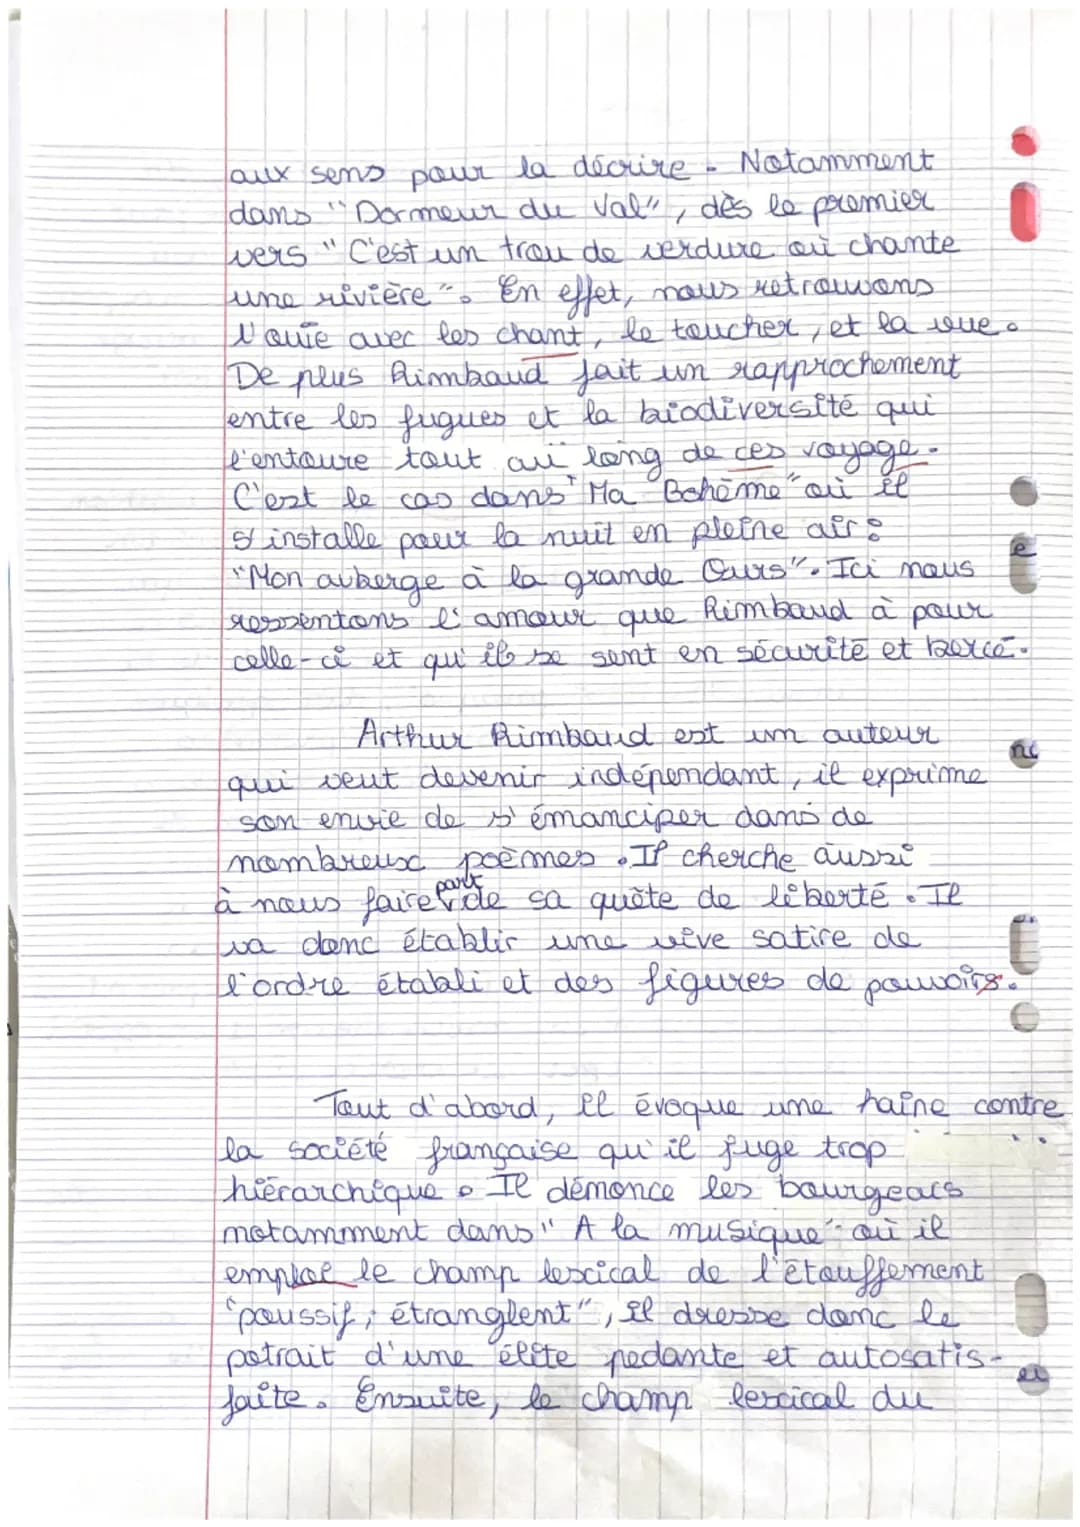 aux sens pour la décrire. Notamment
dans "Dormeur du Val", dès le premier
vers "C'est un trou de verdure où chante
une rivière". En effet, nous retrouvons
l'ouïe avec les chant, le toucher, et la vue.
De plus Rimbaud fait un rapprochement
entre les fugues et la biodiversité qui
l'entoure tout au long de ces voyage.
C'est le cas dans "Ma Bohème" où il
s'installe pour la nuit en pleine air :
"Mon auberge à la grande Ours". Ici nous
ressentons l'amour que Rimbaud à pour
celle-ci et qu'il se sent en sécurité et bercé.
Arthur Rimbaud est un auteur
qui veut devenir indépendant, il exprime
son envie de s'émanciper dans de
nombreux poèmes. Il cherche aussi
à nous faire part de sa quête de liberté. Il
va donc établir une vive satire de
l'ordre établi et des figures de pouvoirs.
Tout d'abord, il évoque une haine contre
la société française qu'il juge trop
hiérarchique. Il démonce les bourgeois
notamment dans "A la musique" où il
emploi le champ lexical de l'étouffement
"poussif ; étranglent", il dresse donc le
potrait d'une élite pedante et autosatis-
faite. Ensuite, le champ lexical du
e
nc
ei